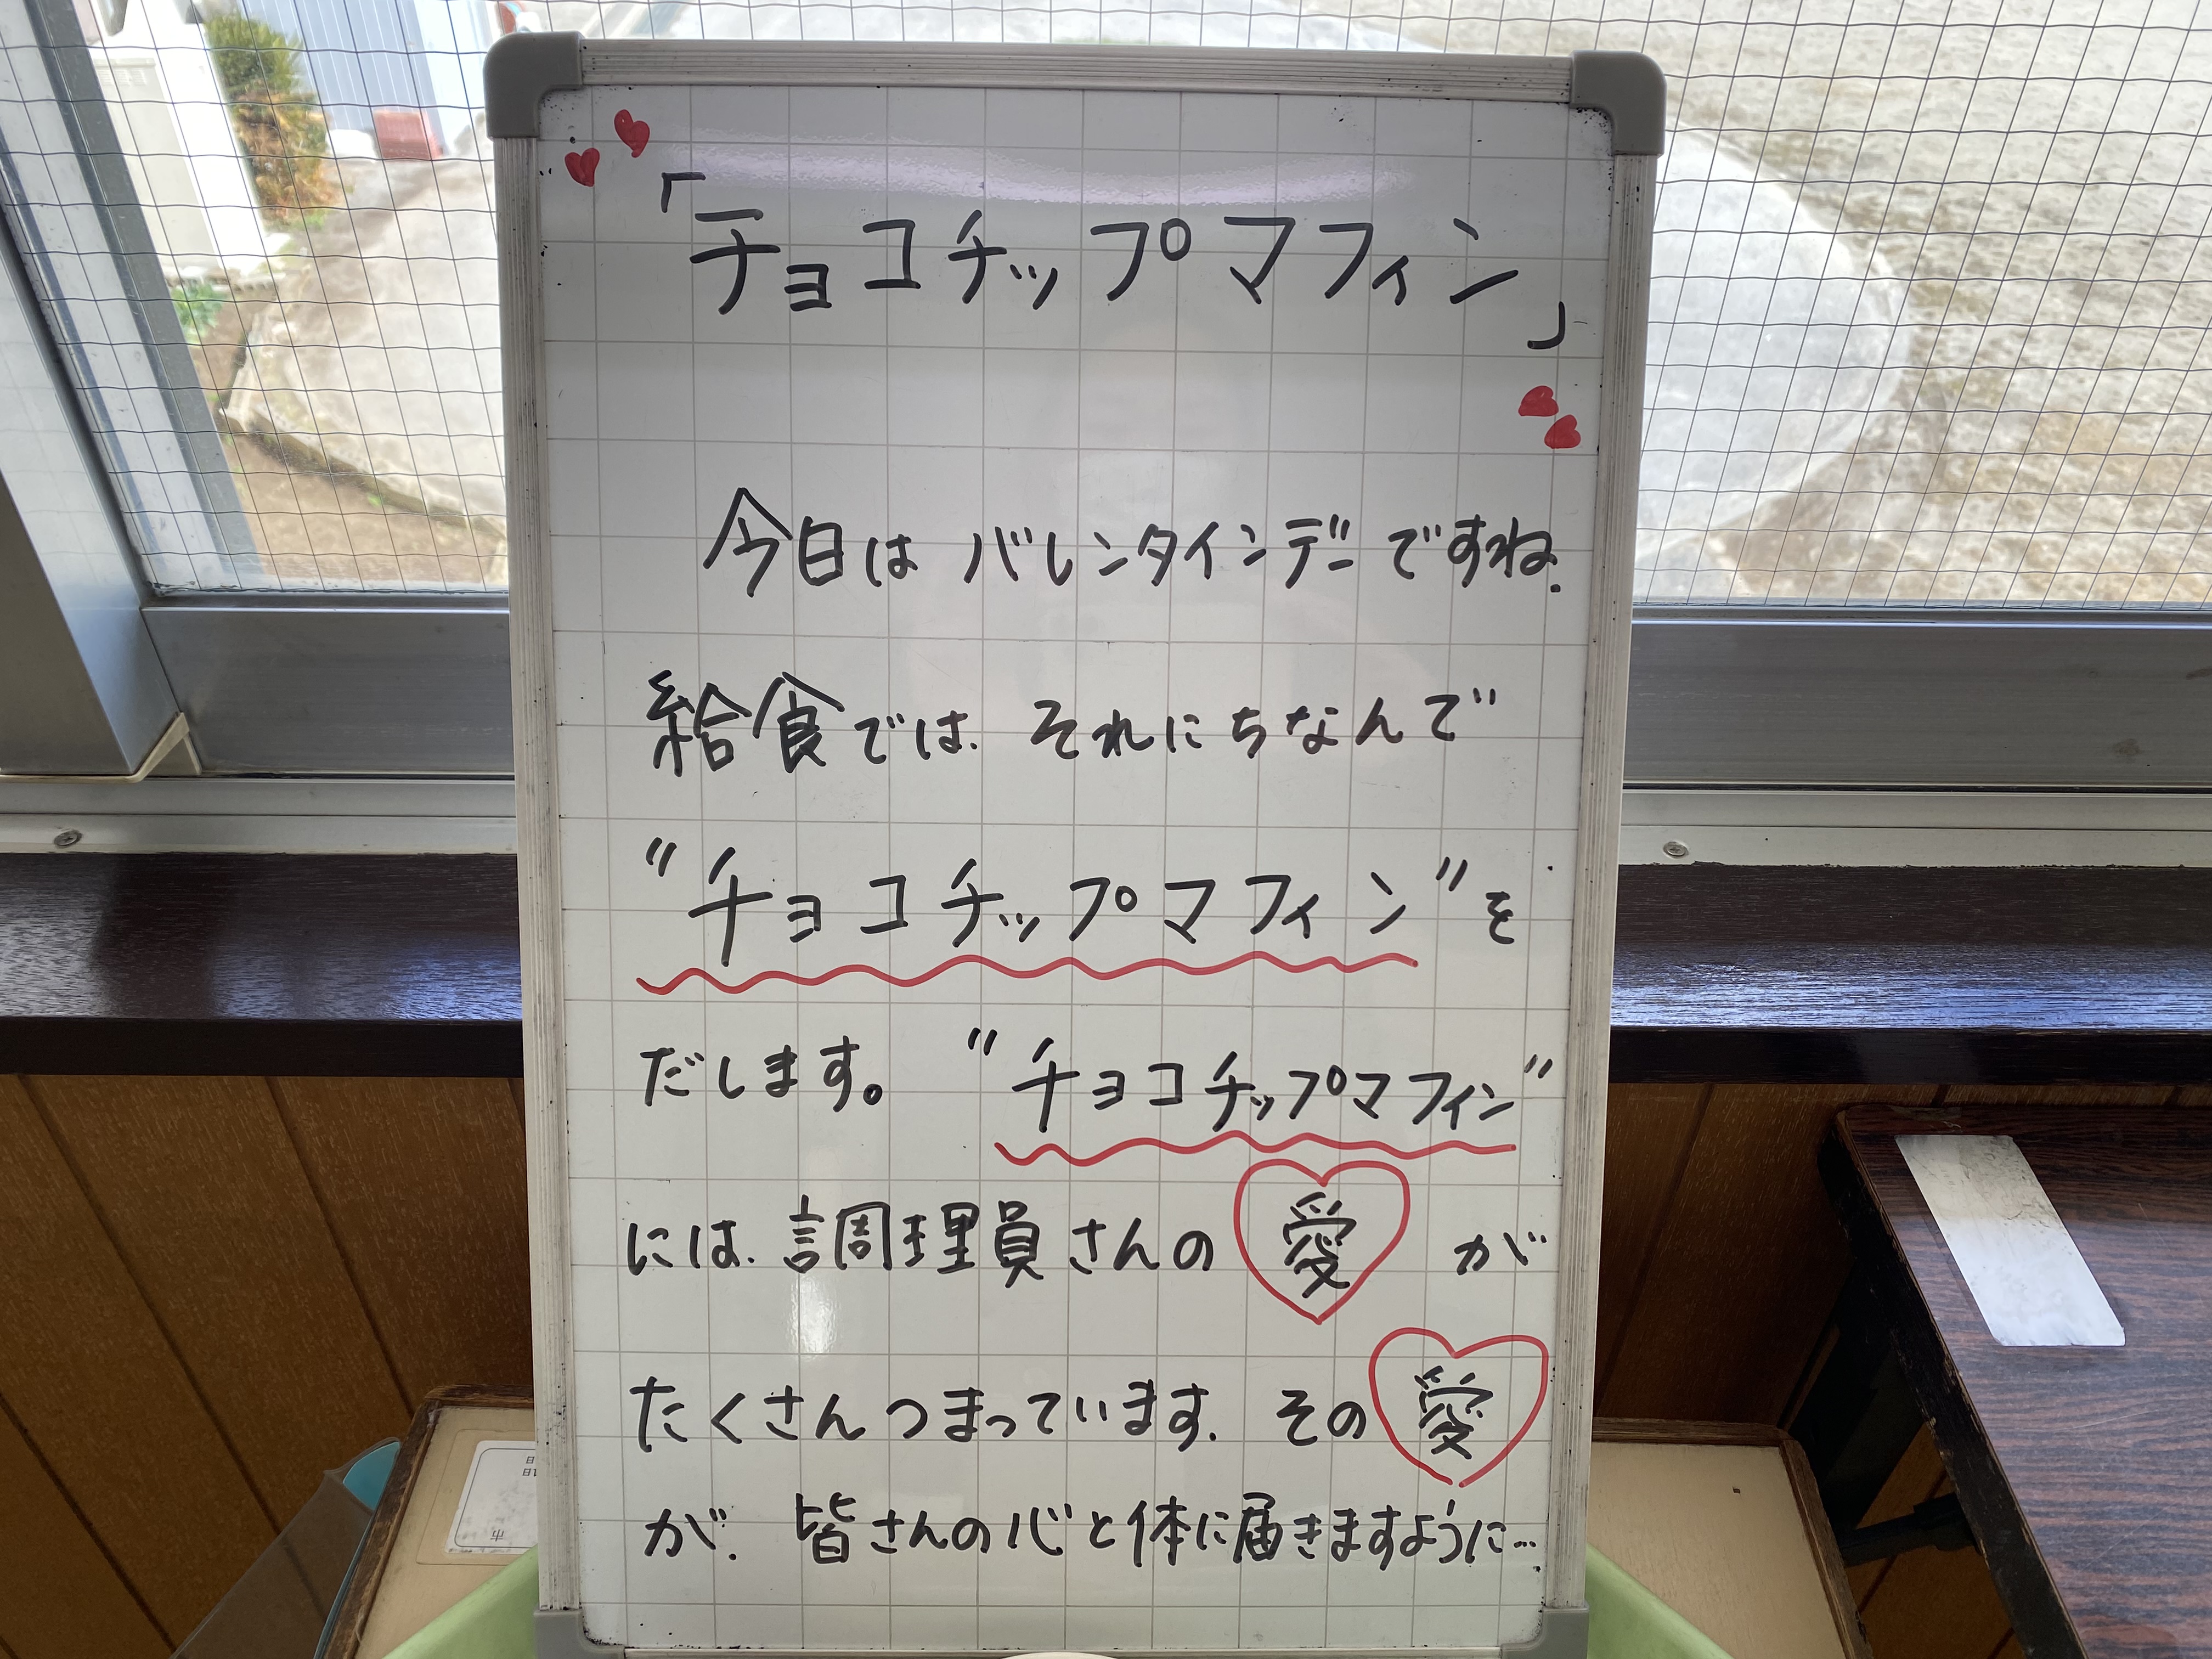 「チョコチップマフィン」
今日は バレンタインデーですね.
給食では. それにちなんで
"チョコチップマフィン"を
だします。 "チョコチップマフィン"
には. 調理員さんの 愛 が
たくさんつまっています. その 愛
が. 皆さんの心と体に届きますように…